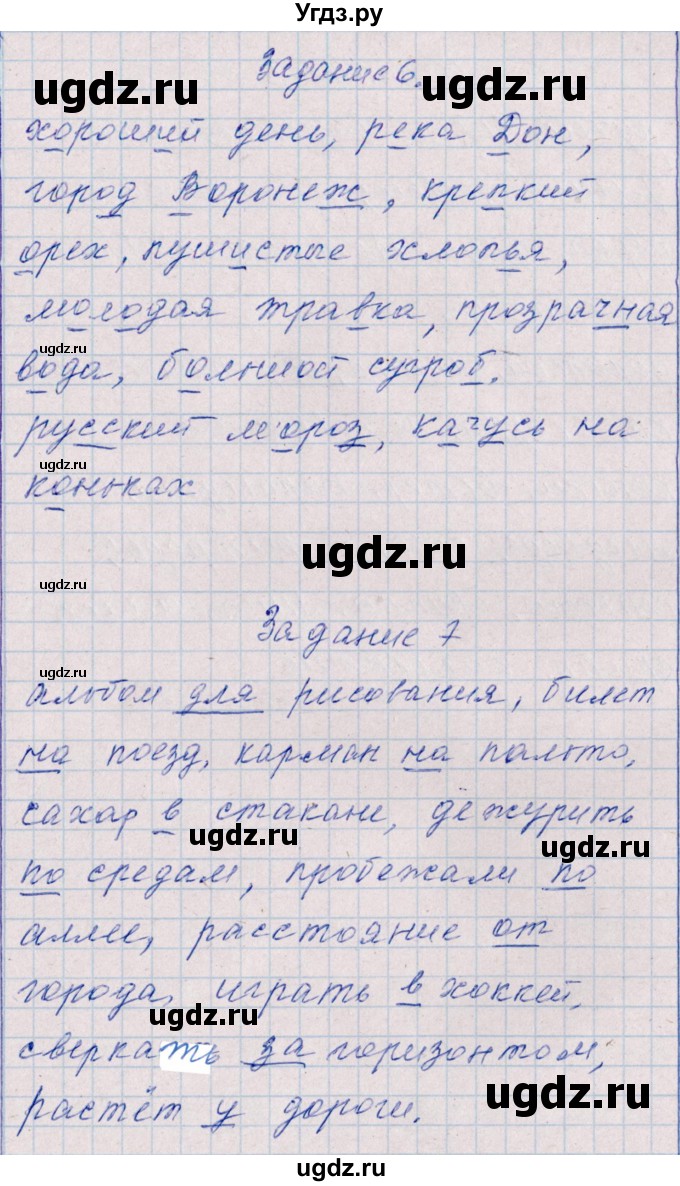 Угдз.ру
Задание 6.
ugdz.ru ugdz.ru
хороший день, река Дон,
город Воронеж, крепкий
орех, пушистые хлопья,
молодая травка, прозрачная
ugdz.ru
вода, болшой сугроб.
русский мороз, качусь на
коньках
ugdz.ru
ugdz.ru
ugdz.ru
Задание 7
ugdz.ru
альбом для рисования, билет
на поезд, карман на пальто,
сахар в стакане, дежурить
ugdz.ru ugdz.ru
по средам, пробежали по
аллее, расстояние от
города, играть в хоккей,
ugdz.ru
сверкать за горизонтом,
ugdz.ru
растёт у дороги.
ugdz.ru